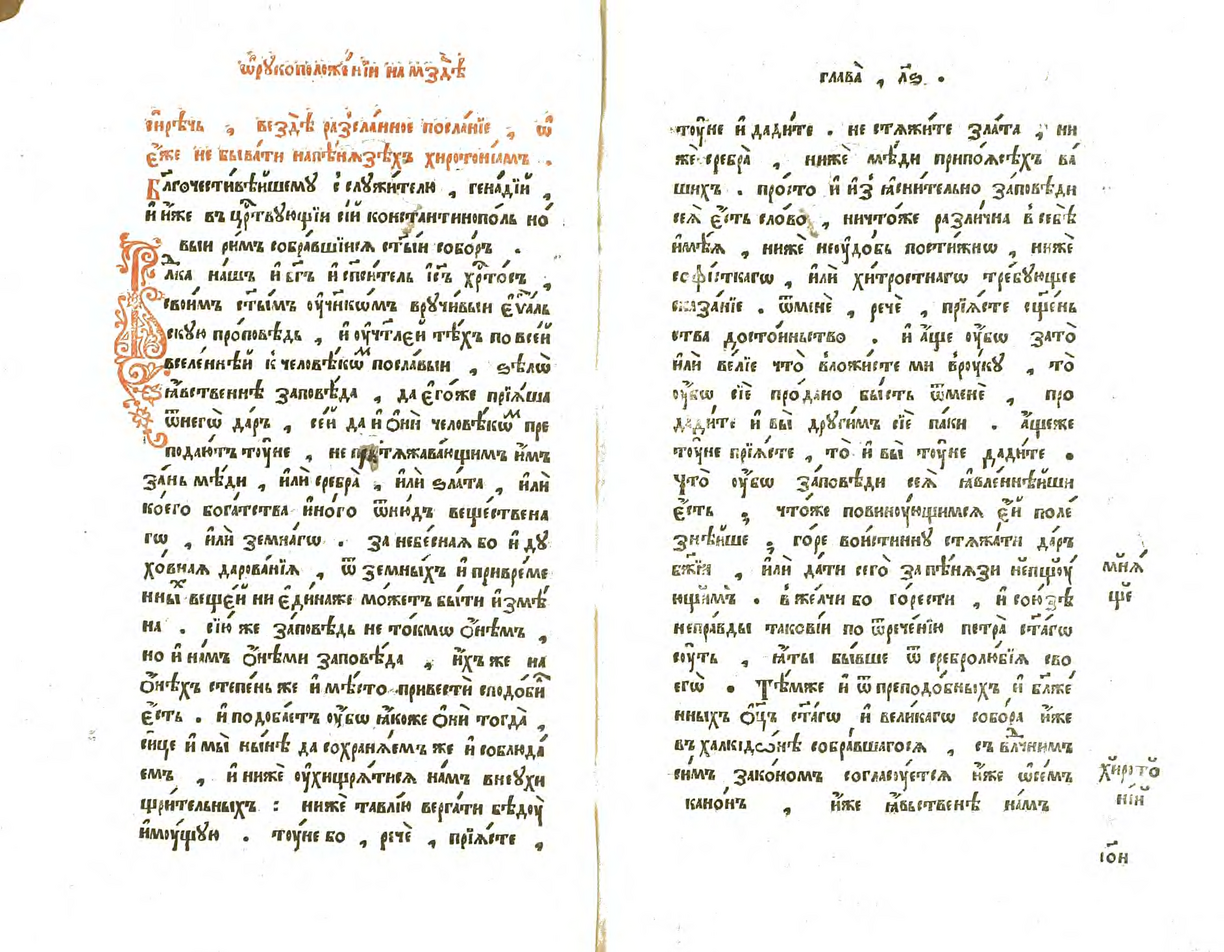 ѿрꙋкоположе́нїи на мздѣ̀
си́рѣчь , вездѣ̀ разсла́нное посла́нїе , ѡ҆
є҆́же не быва́ти напѣ́нѧзѣхъ хиротонїѧмъ .
Бл҃гочести́вѣйшему с̾слꙋжи́телю , гена́дїй ,
и҆ и҆́же въ црⷭ҇твꙋющїи се́й константинопо́ль но́
выи ри́мъ собра́вшїисѧ ст҃ы́и собо́ръ .
Влⷣка нашъ и҆ бг҃ъ и҆ спс҃и́тель і҆с҃ъ хрⷭ҇то́съ ,
свои́мъ ст҃ы́мъ оу҆ч҃нкѡмъ врꙋчи́выи є҆ѵⷢ҇аль
скꙋю про́повѣдь , и҆ оу҆чт҃лей тѣ́хъ по все́й
вселе́ннѣй к̾ человѣ́кѡⷨ посла́выи , ѕѣлѡ̀
ꙗ҆́вственнѣ заповѣ́да , да є҆го́же прїѧ́ша
ѿнегѡ̀ да́ръ , се́й да и҆ ѻ҆нѝ человѣ́кѡⷨ пре
подаю́тъ тоу́не , не притѧжава́ющимъ и҆мъ
за́нь мѣ́ди , и҆лѝ сребра̀ , и҆лѝ ѕла́та , и҆лѝ
коего̀ бога́тства и҆но́го ѿню́дъ веще́ствена
гѡ , и҆лѝ земна́гѡ . за небе́снаѧ бо и҆ дꙋ
хо́внаѧ дарова́нїѧ , ѿ земны́хъ и҆ привре́ме
нныⷯ веще́й ни є҆ди́наже мо́жетъ бы́ти и҆змѣ́
на . сїю́ же за́повѣдь не то́кмѡ ѻ҆нѣ́мъ ,
но и҆ на́мъ ѻ҆нѣ́ми заповѣ́да , и҆́хъ же на
ѻ҆нѣ́хъ степе́нь же и҆ мѣ́сто привестѝ сподо́биⷧ
є҆́сть . и҆ подоба́етъ оу҆́бѡ ꙗ҆́коже ѻ҆нѝ тогда̀ ,
си́це и҆ мы̀ ны́нѣ да сохранѧ́емъ же и҆ соблюда́
емъ , и҆ нижѐ оу҆хищрѧ́тисѧ на́мъ внеꙋхи
щри́тельныхъ : нижѐ тавлі́ю верга́ти бѣдоу̀
и҆моу́щꙋю . тоу́не бо , речѐ , прїѧ́сте ,
глава̀ , л҃ѕ .
тоу́не и҆ дади́те . не стѧжи́те зла́та , ни
жѐ сребра̀ , нижѐ мѣ́ди припо́ѧсѣхъ ва́
шихъ . про́сто и҆ и҆з̾ꙗсни́тельно за́повѣди
сеѧ̀ є҆́сть сло́во , ничто́же разли́чна в̾себѣ̀
и҆мѣ́ѧ , нижѐ неꙋдо́бь пости́жнѡ , нижѐ
софі́сткагѡ , и҆лѝ хи́тростнагѡ тре́бꙋющее
сказа́нїе . ѿменѐ , речѐ , прїѧ́сте сщ҃е́нь
ства досто́иньство . и҆ а҆́ще оу҆́бѡ зато̀
и҆лѝ ве́лїе что̀ вложи́сте ми врꙋкꙋ , то̀
оу҆́бѡ сїѐ про́дано бы́сть ѿменѐ , про
дади́те и҆ вы̀ дрꙋги́мъ сїѐ па́ки . а҆́щеже
тоу́не прїѧ́сте , то̀ и҆ вы̀ тоу́не дади́те .
Что̀ оу҆́бѡ за́повѣди сеѧ̀ ꙗ҆вле́ннѣйши
є҆́сть , что́же повинꙋ́ющимсѧ є҆́й поле́
знѣйше , го́ре вои́стиннꙋ стѧжа́ти да́ръ
бж҃їи , и҆лѝ да́ти сего̀ запѣ́нѧзи непщꙋ́
ющимъ . в̾же́лчи бо го́рести , и҆ сою́зѣ
непра́вды такові́и по ѿрече́нїю петра̀ ст҃а́гѡ
соу́ть , ꙗ҆́ты бы́вше ѿ сребролю́бїѧ сво
егѡ̀ . Тѣ́мже и҆ ѿ преподо́бныхъ и҆ бл҃же́
нныхъ ѻ҆ц҃ъ ст҃а́гѡ и҆ вели́кагѡ собо́ра и҆́же
въ халкідо́нѣ собра́вшагосѧ , съ блⷣчнимъ
си́мъ зако́номъ согласꙋ́етсѧ и҆́же ѡ҆се́мъ
канѡ́нъ , и҆́же ꙗ҆́вьственѣ на́мъ
мнѧ́
ще
хи́рото
ні́й
і҆ѡ҃н